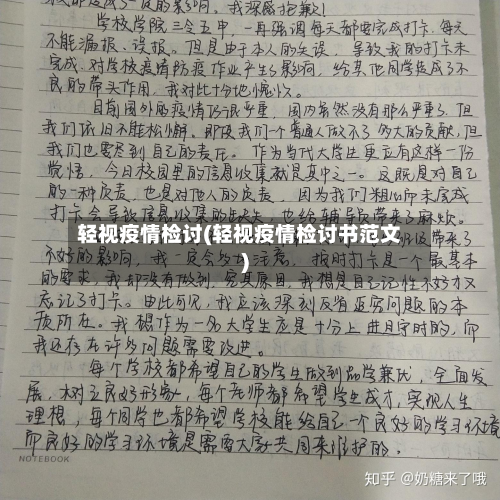 学校学院三令五申,一再强调每天都要完成打卡,每天
不能漏报、误报。但是由于本人的失误,导致我的打卡未
完成,对学校疫情防疫作业产生了影响,给其他同学造成了不
良的带头作用,我对此十分地愧疚。
目前国外的疫情仍很严重,国内虽然没有那么严重了,但
我们依旧不能松懈。即使我们个普通人做不了多大的贡献,但
我们也要尽到自己的责任。作为当代大学生更应有这样一份
觉悟,今日校园里的信息收集就是其中之一。这既是对自己
的一种负责,也是对他人的负责,因为我们粗心而未完成
打卡会导致信息收集的缺失,也给辅导员带来了麻烦。
轻视疫情检讨(轻视疫情检讨书范文
)
不好的影响,我一定会多加注意。按时打卡是一个最基本
的要求,我却没有做到,究其原因,我想是自己记性不好才又
忘记了打卡。由此可见,我应该深刻反省并究问题的本
质所在。我想作为一名大学生应是十分上进且守时的,而
我还存在许多问题需要改进。
每个学校都希望自己的学生做到品学兼优,全面发
展,树立良好形象,每个老师都希望学生成才,实现人生
理想,每个同学也都希望学校能给自己一个良好的学习环境
而良好的学习环境是需要大家共同来维护的。
NOTEBOOK
知乎 @奶糖来了哦